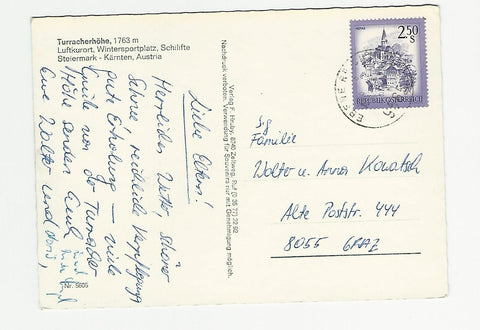 Turracherhöhe, 1763 m
Luftkurort, Wintersportplatz, Schilifte
Steiermark - Kärnten, Austria
Liebe Eltern!
Herrliches Wetter, schöner
Schnee, reichliche Verpflegung
gute Erholung — viele
Grüße von der Turracher
Höhe senden Euch
Eure Walter und Doris,
Nr. 5605
Verlag F. Hruby, 8740 Zeltweg, Ruf (0 35 77) 22 92
Nachdruck verboten. Verwendung für Souvenirs nur mit Genehmigung möglich.
2.50
S
REPUBLIK ÖSTERREICH
Familie
Walter u. Anna Kowatsch
Alte Poststr. 444
8055 GRAZ